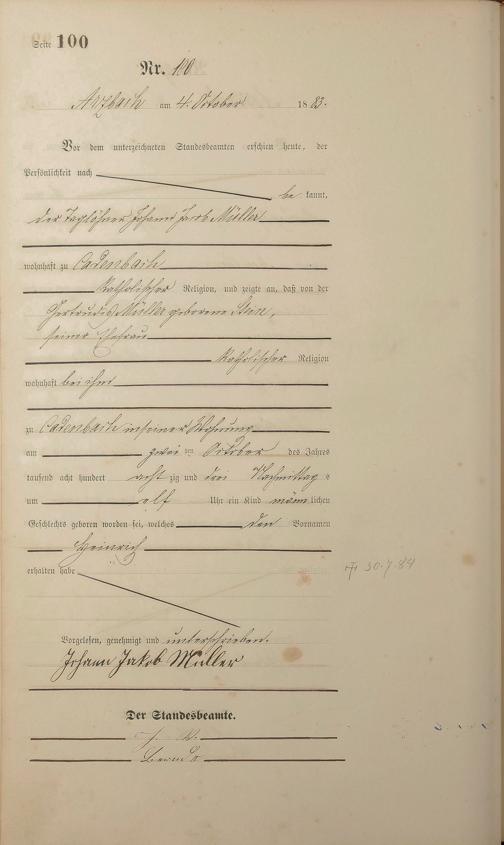 Seite 100
Nr. 100
Arzbach am 4. October 1883.
Vor dem unterzeichneten Standesbeamten erschien heute, der
Persönlichkeit nach
be kannt,
der Taglöhner Johann Jacob Müller
wohnhaft zu Cadenbach
katholischer Religion, und zeigte an, daß von der
Gertrude Müller geborene
seiner Ehefrau
katholischer Religion
wohnhaft bei ihm
zu Cadenbach in seiner Wohnung
am zwei ten October des Jahres
tausend acht hundert acht zig und drei Nachmittags
um elf Uhr ein Kind männlichen
Geschlechts geboren worden sei, welches den Vornamen
Heinrich
erhalten habe
30.7.84
Vorgelesen, genehmigt und unterschrieben.
Johann Jakob Müller
Der Standesbeamte.